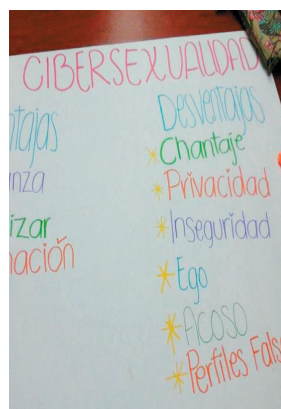 CIBERSEXUALIDAD
ntajas
nza
izar
nación
Desventajas
Chantaje
Privacidad
Inseguridad
Ego
Acoso
Perfiles Fals